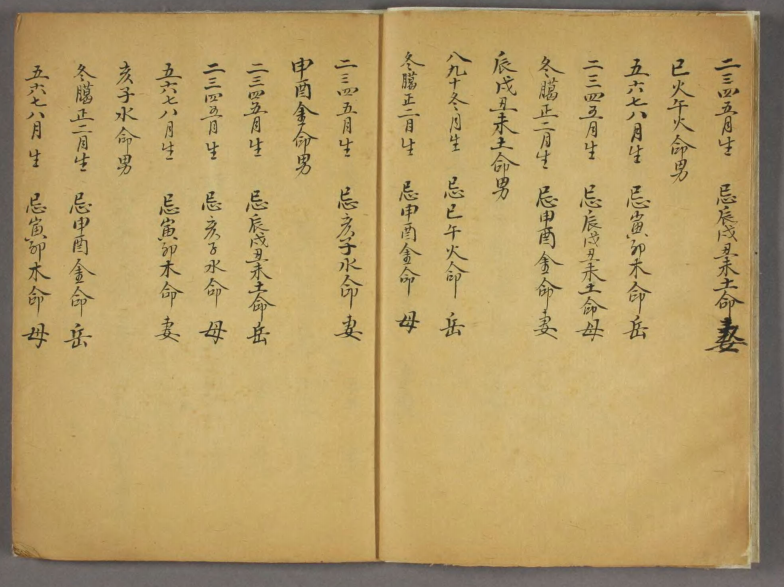 二三四五月生 忌辰戌丑未土命妻
巳火午火命男
五六七八月生 忌寅卯木命岳
二三四五月生 忌辰戌丑未土命母
冬臈正二月生 忌甲酉金命妻
辰戌丑未土命男
八九十冬月生 忌巳午火命岳
冬臈正二月生 忌申酉金命母
二三四五月生 忌亥子水命妻
申酉金命男
二三四五月生 忌辰戌丑未土命岳
二三四五月生 忌亥子水命母
五六七八月生 忌寅卯木命妻
亥子水命男
冬臈正二月生 忌申酉金命岳
五六七八月生 忌寅卯木命母